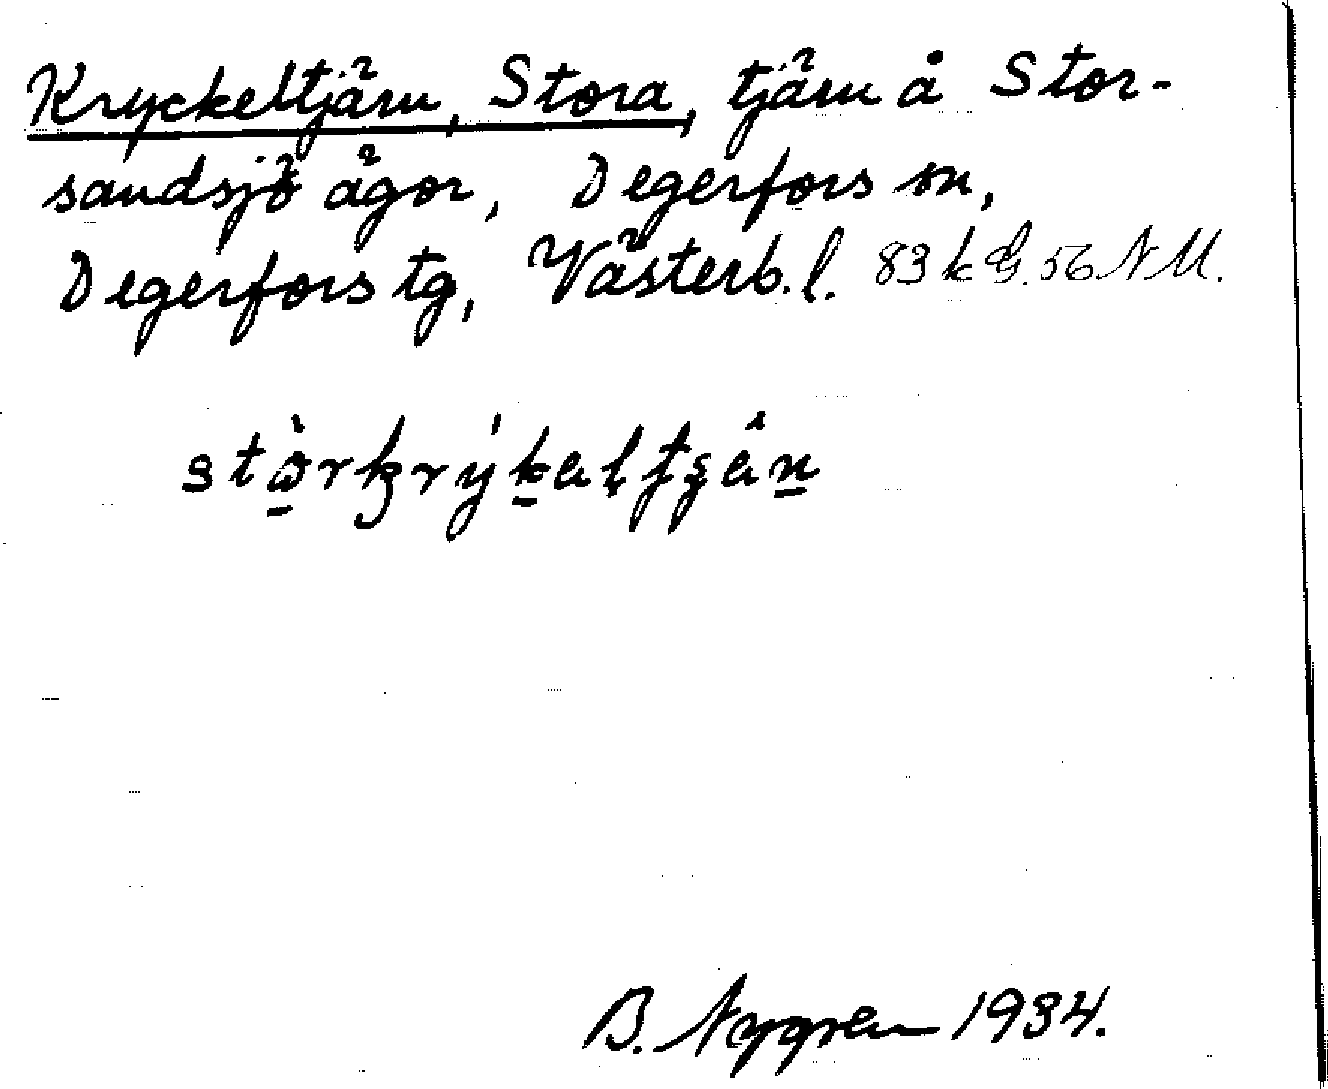 Kryckeltjärn, Stora, tjärn å Stor-
sandsjö ägor, Degerfors sn,
Degerfors tg, Västerb. l. 83 k G. 56 N M.
B. Nygren 1934.